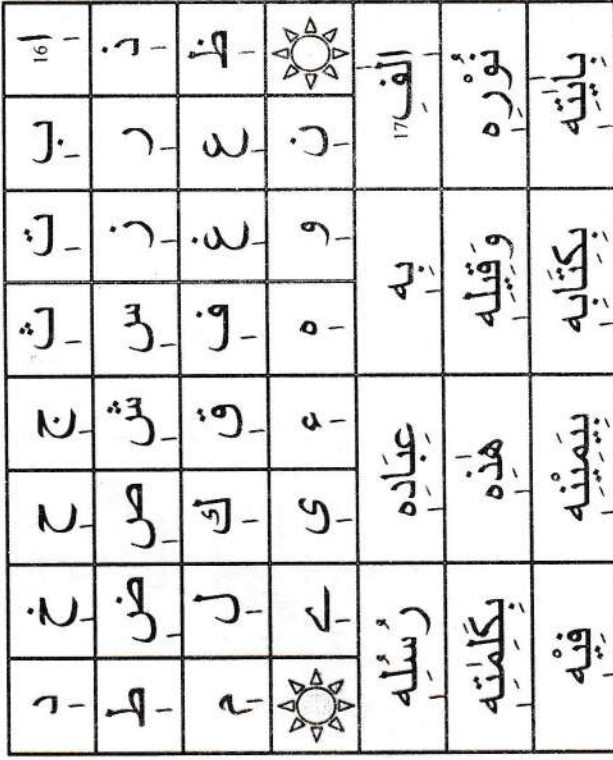 16 اٖ بٖ تٖ ثٖ جٖ حٖ خٖ دٖ
ذٖ رٖ زٖ سٖ شٖ صٖ ضٖ طٖ
ظٖ عٖ غٖ فٖ قٖ كٖ لٖ مٖ
نٖ وٖ هٖ ءٖ يٖ ےٖ
17 اٖلٰفِ بِهٖ عِبَادِهٖ رُسُلِهٖ
نُوْرِهٖ وَقِيْلِهٖ هٰذِهٖ بِكَلِمٰتِهٖ
بِاٰيٰتِهٖ بِكِتَابِهٖ بِيَمِيْنِهٖ فِيْهٖ